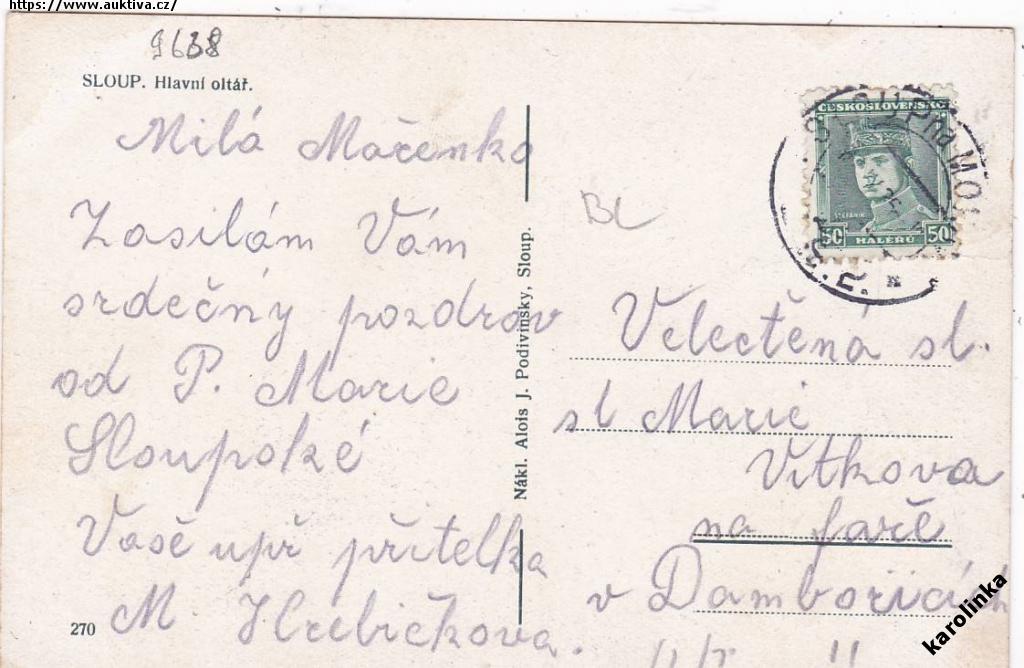 https://www.auktiva.cz/
9638
SLOUP. Hlavní oltář.
Milá Mařenko
Zasilám Vám
srdečny pozdrav
od P. Marie
Sloupské
Vaše upř přítelka
M Hrebičkova.
270
Nákl. Alois J. Podivínský, Sloup.
BL
ČESKOSLOVENSKO
ŠTEFÁNIK
50 HALÉŘŮ 50
Velectěná sl.
sl Marie
Vitkova
na fařě
v Dambořicích
karolinka